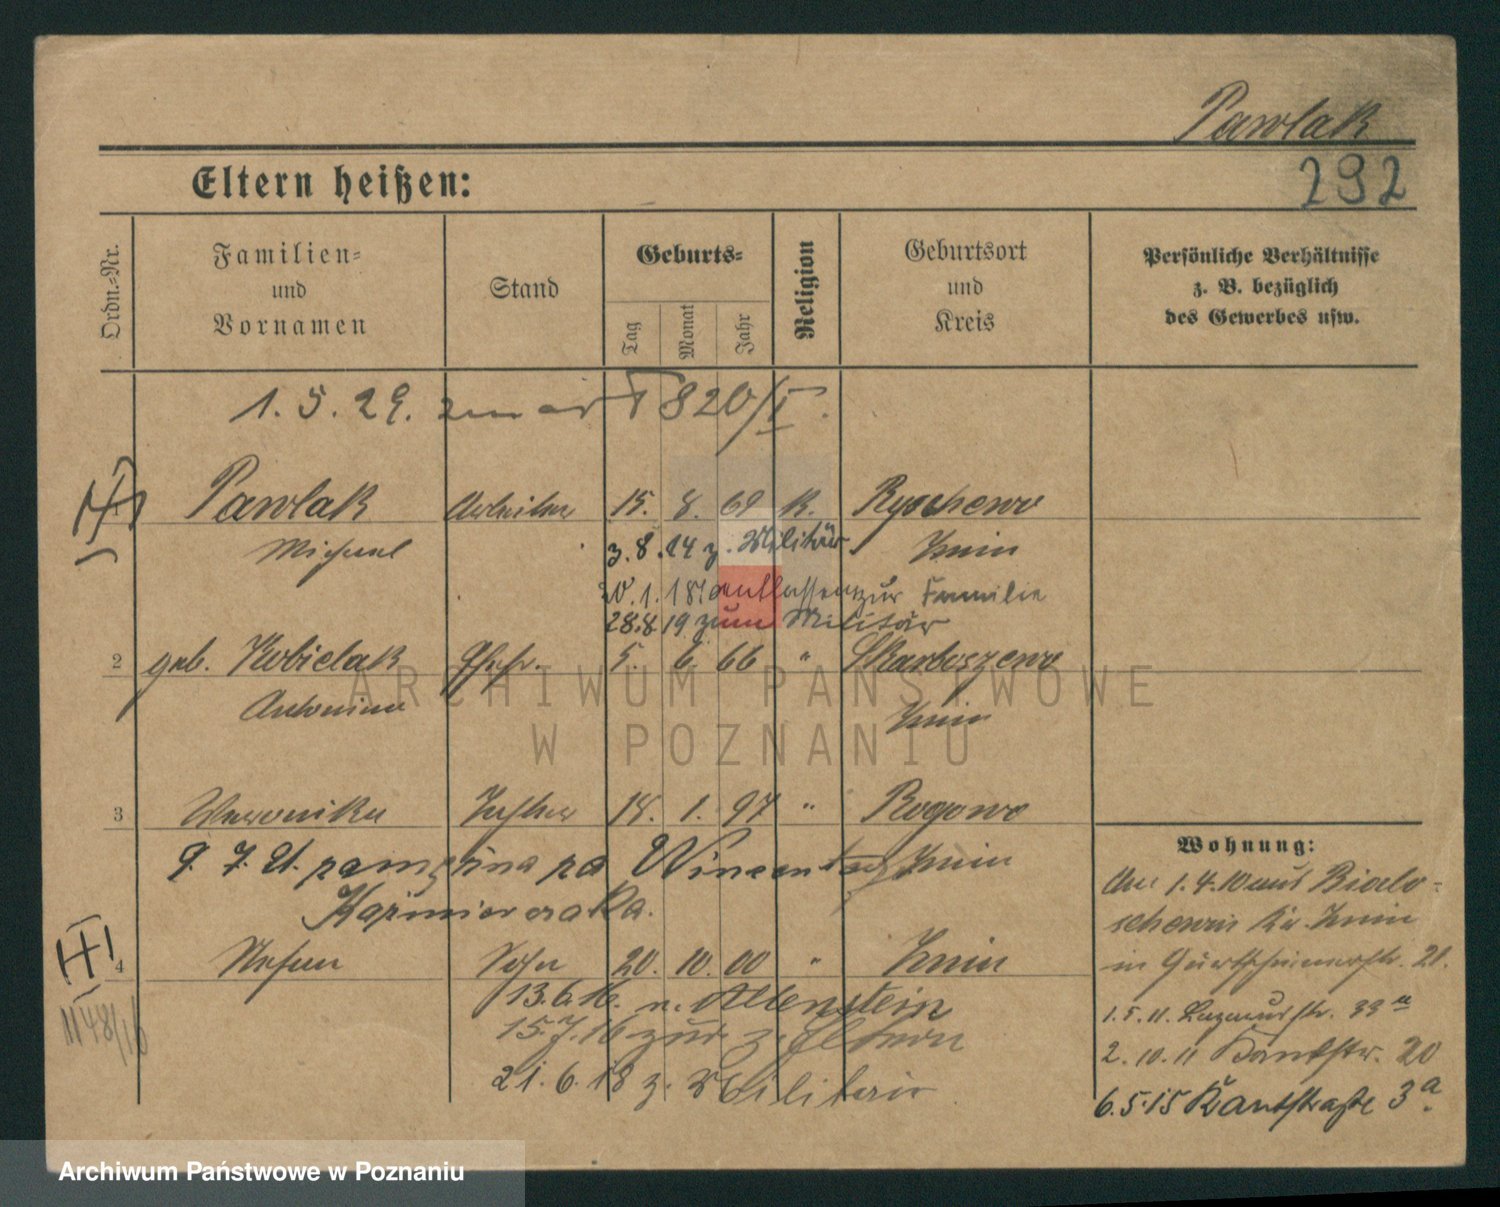 Pawlak
292
Eltern heißen:
Ordn.-Nr.
Familien-
und
Vornamen
Stand
Geburts-
Tag
Monat
Jahr
Religion
Geburtsort
und
Kreis
Persönliche Verhältnisse
z. B. bezüglich
des Gewerbes usw.
1. 5. 29. 820/I.
Pawlak Arbeiter 15. 8. 69 k. Ryschewo
Michael 3. 8. 14 z. Militär Znin
20. 1. 18 entlassen zur Familie
28.8.19 zum Militär
2 geb. Kobielak Ehefr. 5. 6. 66 " Skarboszewo
Antonina Znin
3 Weronika Tochter 18. 1. 97 " Rogowo
za Wincentego Znin
Kaźmierczaka.
4 Stefan Sohn 20. 10. 00 " Znin
13.6.16. n. Allenstein
1148/16
15.7.16 zur. z. Eltern
21. 6. 18 z. Militär
Wohnung:
1.4.10 aus Bialo-
schewin Kr. Znin
in Gurtschinerstr. 21.
1.5.11. Lazarusstr. 33a
2. 10. 11 Kantstr. 20
6.5.15 Kantstraße 3a.
ARCHIWUM PAŃSTWOWE
W POZNANIU
Archiwum Państwowe w Poznaniu